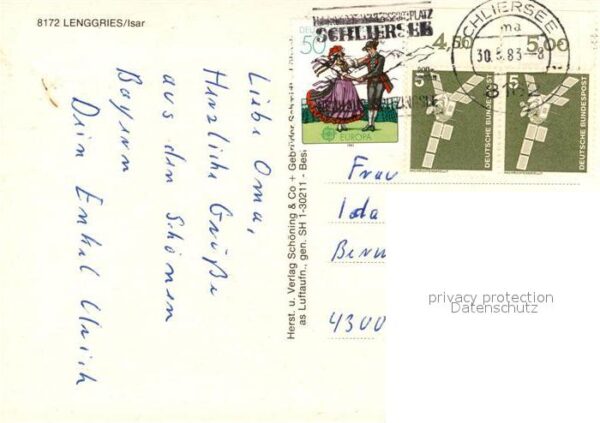 8172 LENGGRIES/Isar
Liebe Oma,
Herzliche Grüße
aus dem Schönen
Bayern
Dein Enkel Ulrich
Herst. u. Verlag Schöning & Co + Gebrüder Schmidt
as Luftaufn., gen. SH 1-30211 - Best
50
EUROPA
SCHLIERSEE
4,50
5,00
SCHLIERSEE
ma
30.5.83-8
5
DEUTSCHE BUNDESPOST
5
DEUTSCHE BUNDESPOST
Frau
Ida
4300
privacy protection
Datenschutz